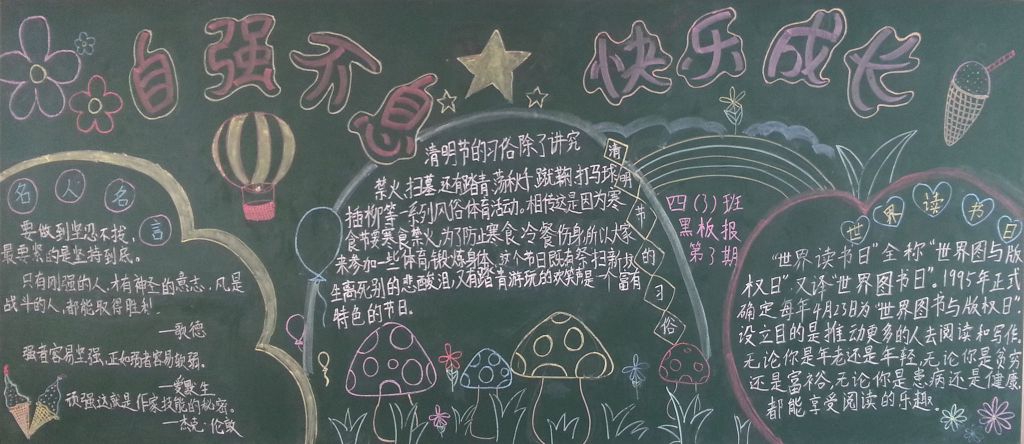 自强不息
快乐成长
名人名言
要做到坚忍不拔,
最要紧的是坚持到底。
只有刚强的人,才有神圣的意志,凡是
战斗的人,都能取得胜利.
—歌德
强者容易坚强,正如弱者容易软弱。
—爱默生
顽强这就是作家技能的秘密。
—杰克·伦敦
清明节的习俗除了讲究
禁火、扫墓,还有踏青、荡秋千、蹴鞠、打马球、
插柳等一系列风俗体育活动。相传这是因为寒
食节要寒食禁火,为了防止寒食冷餐伤身,所以大家
来参加一些体育锻炼身体。这个节日既有祭扫新坟
生离死别的悲酸泪,又有踏青游玩的欢笑声,是一个富有
特色的节日。
清明节的习俗
四(3)班
黑板报
第3期
世界读书日
“世界读书日”全称“世界图与版
权日”,又译“世界图书日”。1995年正式
确定每年4月23日为“世界图书与版权日”,
设立目的是推动更多的人去阅读和写作,
无论你是年老还是年轻,无论你是贫穷
还是富裕,无论你是患病还是健康
都能享受阅读的乐趣。